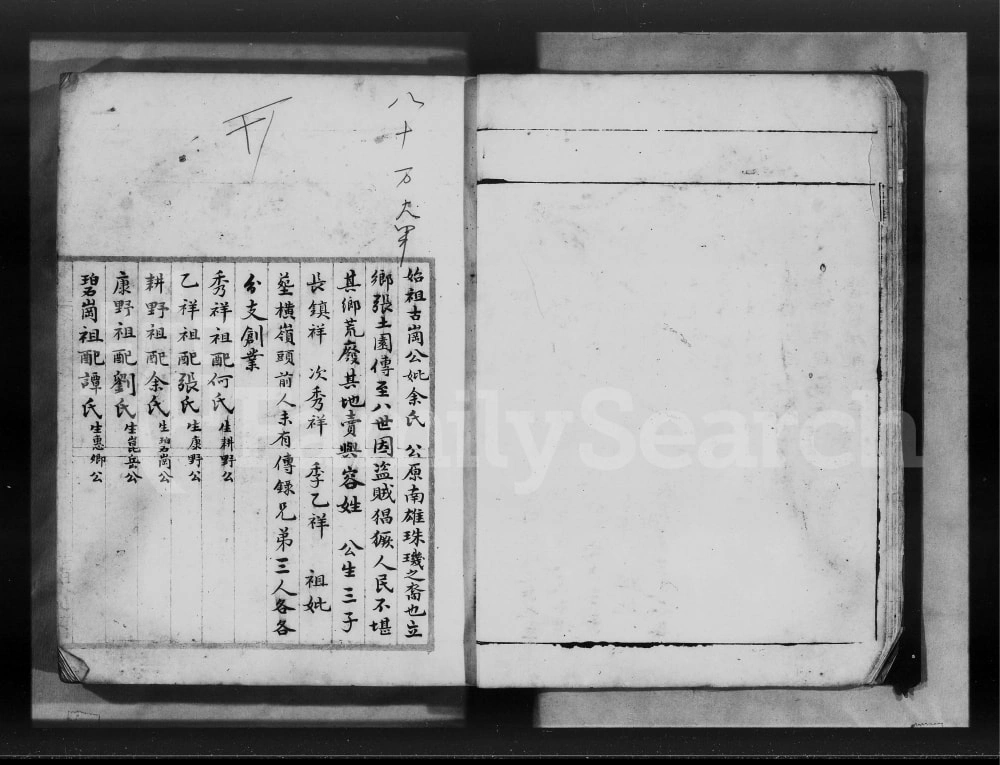 八十万九甲
始祖古崗公妣余氏 公原南雄珠璣之裔也立
鄉張土園傳至八世因盜賊猖獗人民不堪
其鄉荒廢其地賣與容姓 公生三子
長鎮祥 次秀祥 季乙祥 祖妣
塋橫嶺頭前人未有傳錄兄弟三人各各
分支創業
秀祥祖配何氏生耕野公
乙祥祖配張氏生康野公
耕野祖配余氏生碧崗公
康野祖配劉氏生崑岳公
碧崗祖配譚氏生惠鄉公
FamilySearch